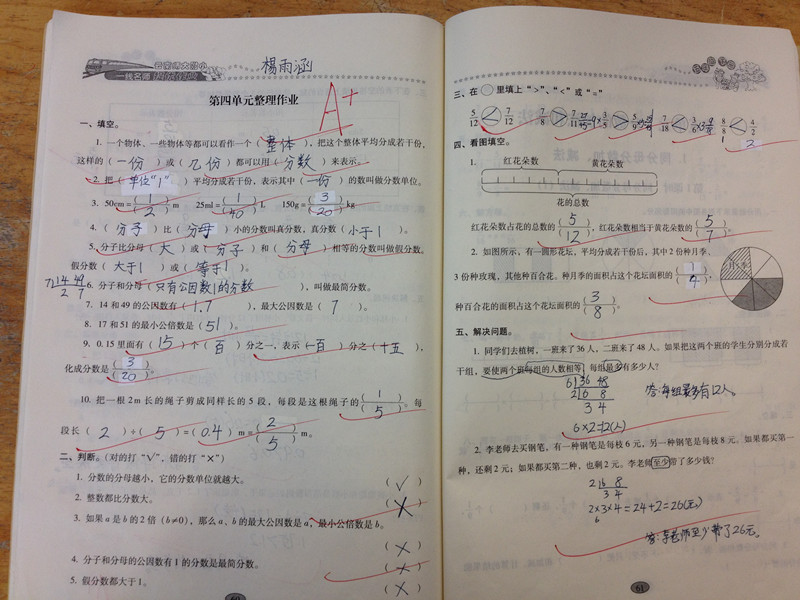 云南师大附小
一线名师
杨雨涵
第四单元整理作业
A+
一、填空。
1. 一个物体、一些物体等都可以看作一个(整体),把这个整体平均分成若干份,
这样的(一份)或(几份)都可以用(分数)来表示。
2. 把(单位“1”)平均分成若干份,表示其中(一份)的数叫做分数单位。
3. 50cm=(1)/(2)m 25ml=(1)/(40)L 150g=(3)/(20)kg
4. (分子)比(分母)小的分数叫真分数,真分数(小于1)。
5. 分子比分母(大)或(分子)和(分母)相等的分数叫做假分数。
假分数(大于1)或(等于1)。
6. 分子和分母(只有公因数1的分数),叫做最简分数。
7 14 49
2 7
7. 14和49的公因数有(1,7),最大公因数是(7)。
8. 17和51的最小公倍数是(51)。
9. 0.15里面有(15)个(百)分之一,表示(百)分之(十五),
化成分数是(3)/(20)。
10. 把一根2m长的绳子剪成同样长的5段,每段是这根绳子的(1)/(5)。每
段长(2)÷(5)=(0.4)m=(2)/(5)m。
二、判断。(对的打“√”,错的打“×”)
1. 分数的分母越小,它的分数单位就越大。(√)
2. 整数都比分数大。(×)
3. 如果a是b的2倍(b≠0),那么a、b的最大公因数是a,最小公倍数是b。
(×)
4. 分子和分母的公因数有1的分数是最简分数。(×)
5. 假分数都大于1。(×)
60
三、在○里填上“>”、“<”或“=”
5/12 < 7/12 7/8 > 7/11 3/5 > 5/9 7/18 < 3/6 8/8 < 4/2
四、看图填空。
1. 红花朵数 黄花朵数
花的总数
红花朵数占花的总数的(5)/(12),红花朵数相当于黄花朵数的(5)/(7)。
2. 如图所示,有一圆形花坛,平均分成若干份后,其中2份种月季,
月季
3份种玫瑰,其他种百合花。种月季的面积占这个花坛面积的(1)/(4),
种百合花的面积占这个花坛面积的(3)/(8)。
五、解决问题。
1. 同学们去植树,一班来了36人,二班来了48人。如果把这两个班的学生分别分成若
干组,要使两个班每组的人数相等,每组最多有多少人?
6 36 48
2 6 8
3 4
答:每组最多有12人。
6×2=12(人)
2. 李老师去买钢笔,有一种钢笔是每枝6元,另一种钢笔是每枝8元。如果都买第一
种,还剩2元;如果都买第二种,也剩2元。李老师至少带了多少钱?
2 6 8
3 4
2×3×4=24+2=26(元)
6
答:李老师至少带了26元。
61